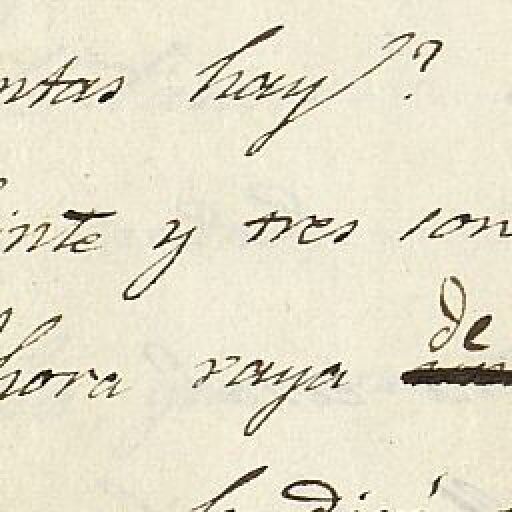 ntas hay?
inte y tres son
hora vaya de